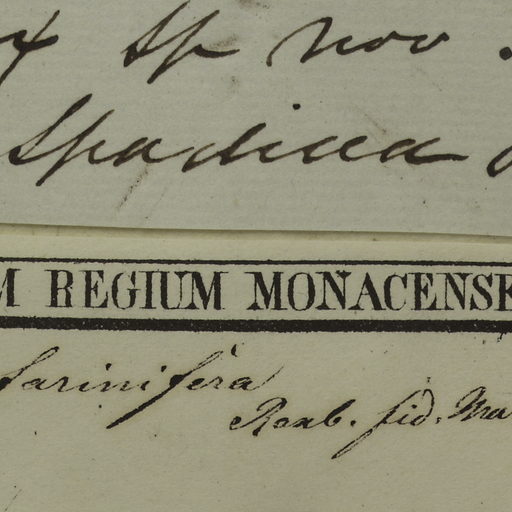 sp nov.
spadicea
M REGIUM MONACENSE
farinifera
Roxb. fid. Ma